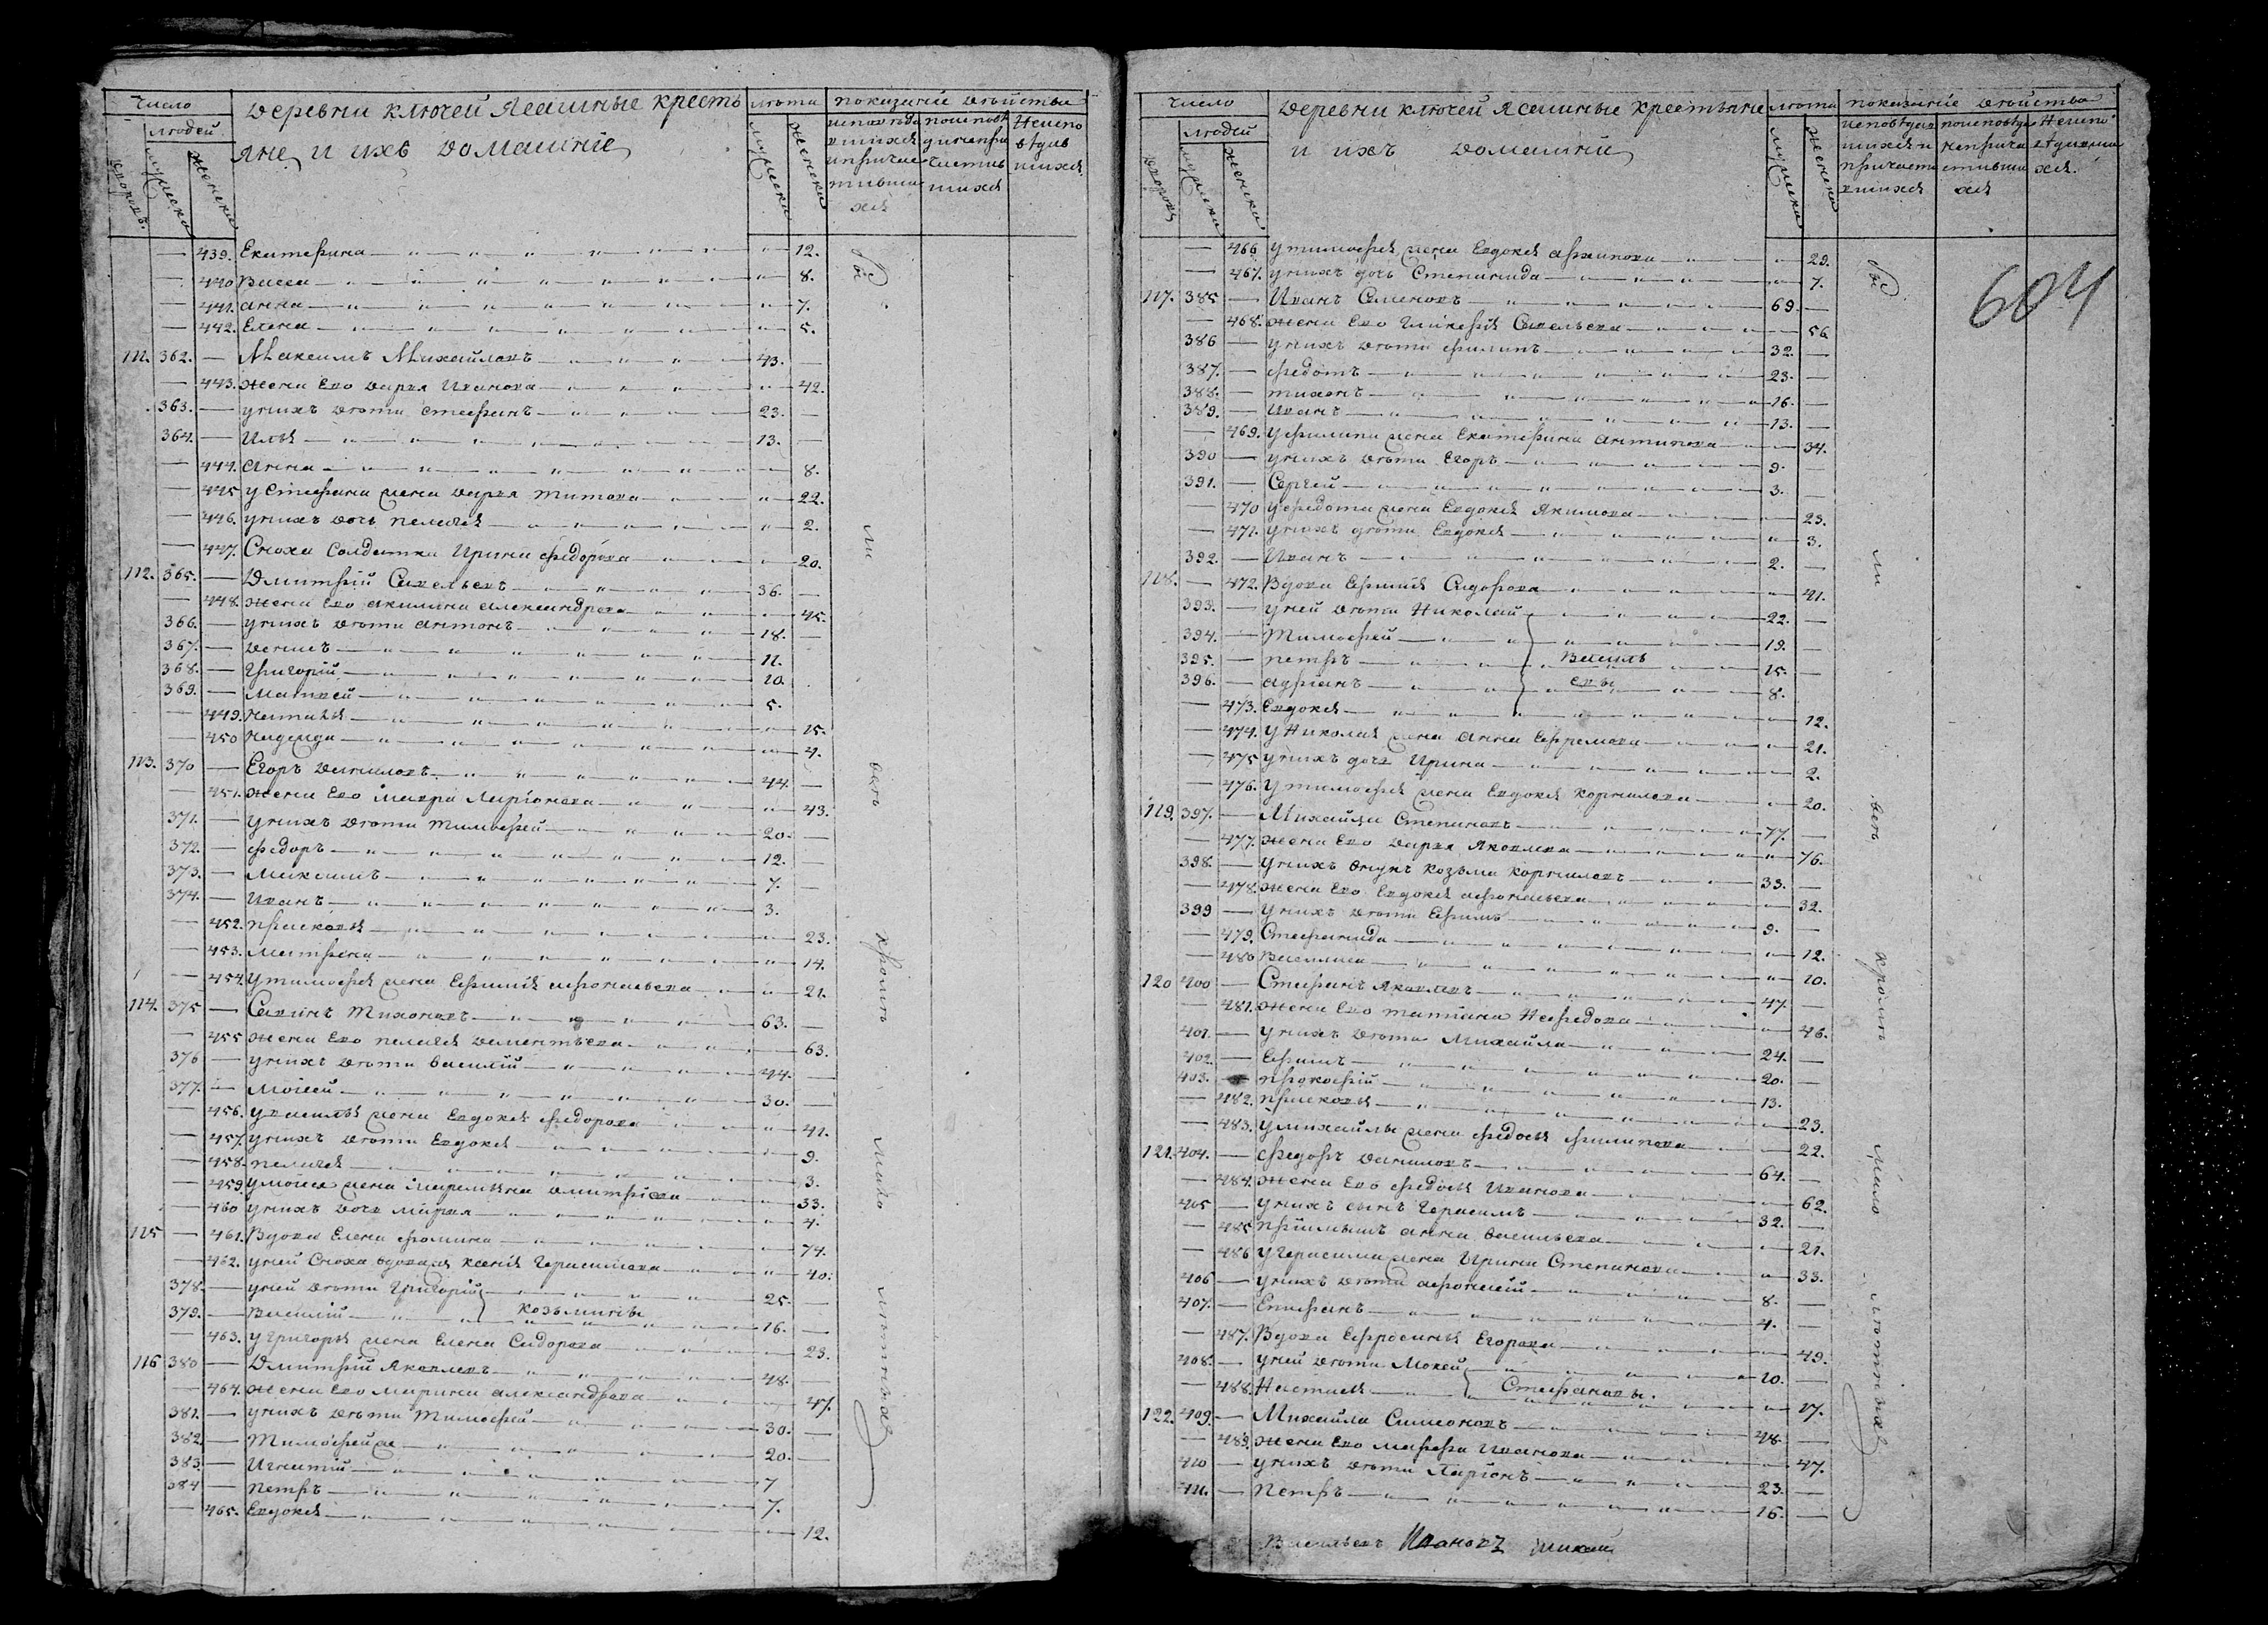 Число
людей
дворовъ.
мужеска
женска
Деревни ключей Ясашные кресть
яне и ихъ домашніе
лѣта
мужеска
женска
показаніе дѣйства
439. Екатерина 12.
440 Васса 8.
441. Анна 7.
442. Елена 5.
111. 362. Максимъ Михайловъ 43.
443. жена Ево Дарья Иванова 42.
363. у нихъ дѣти Стефанъ 23.
364. Илья 13.
444. Анна 8.
445 у Стефана жена Дарья Титова 22.
446. у нихъ дочь Пелагея 2.
447. Сноха Солдатка Ирина Федорова 20.
112. 365. Дмитрій Савельевъ 36.
448. жена Ево Акилина Александрова 45.
366. у нихъ дѣти Антонъ 18.
367. Денисъ 11.
368. Григорій 10.
369. Матвей 5.
449. Наталья 15.
450 Надежда 4.
113. 370 Егоръ Даниловъ 44.
451. жена Ево Мавра Ларіонова 43.
371. у нихъ дѣти Тимофей 20.
372. Федоръ 12.
373. Максимъ 7.
374. Иванъ 3.
452. Прасковья 23.
453. Матрена 14.
454. у Тимофея жена Ефимія Афонасьева 21.
114. 375 Савинъ Тихоновъ 63.
455 жена Ево Пелагея Дементьева 63.
376 у нихъ дѣти Василій 44.
377. Моісей 30.
456. у Василья жена Евдокея Федорова 41.
457. у нихъ дѣти Евдокея 9.
458. Пелагея 3.
459 у Моисея жена Маремьяна Дмитріева 33.
460 у нихъ дочь Марья 4.
115 461. Вдова Елена Фомина 74.
462. у ней Сноха вдовая Ксенія Герасимова 40.
378. у ней дѣти Григорій 25.
379. Василій Козьмины 16.
463. у Григорья жена Елена Сидорова 23.
116 380 Дмитрій Яковлевъ 48.
464. жена Ево Марина Александрова 47.
381. у нихъ дѣти Тимофей 30.
382. Тимофей же 20.
383. Игнатій 7
384 Петръ 7.
465. Евдокея 12.
вѣ
ли
всѣ
кромѣ
мало
лѣтныхъ
Число
людей
дворовъ
мужеска
женска
Деревни ключей Ясашные крестьяне
и ихъ домашніе
лѣта
мужеска
женска
показаніе дѣйства
604
466 у Тимофея жена Евдокея Архипова 29.
467. у нихъ дочь Степанида 7.
117. 385 Иванъ Семеновъ 69.
468. жена Ево Гликерія Савельева 56
386 у нихъ дѣти Филипъ 32.
387. Федотъ 23.
388. Тихонъ 16.
389. Иванъ 13.
469. у Филипа жена Екатерина Антипова 34.
390 у нихъ дѣти Егоръ 9.
391. Сергей 3.
470 у Федота жена Евдокея Якимова 23.
471. у нихъ дѣти Евдокея 3.
392. Иванъ 2.
118. 472. Вдова Ефимія Сидорова 41.
393. у ней дѣти Николай 22.
394. Тимофей 19.
395. Петръ Василь 15.
396. Адріанъ евы 8.
473. Евдокея 12.
474. у Николая жена Анна Ефремова 21.
475 у нихъ дочь Ирина 2.
476. у Тимофея жена Евдокея Корнилова 20.
119. 397. Михайла Степановъ 77.
477. жена Ево Дарья Яковлева 76.
398. у нихъ внукъ Козьма Корниловъ 33.
478. жена Ево Евдокея Афонасьева 32.
399 у нихъ дѣти Ефимъ 9.
479. Стефанида 12.
480 Василиса 10.
120 400 Стефанъ Яковлевъ 47.
481. жена Ево Татіана Нефедова 46.
401. у нихъ дѣти Михайла 24.
402. Ефимъ 20.
403. Прокофій 13.
482. Прасковья 23.
483. у Михайлы жена Федосья Филипова 22.
121. 404. Федоръ Даниловъ 64.
484. жена Ево Федосья Иванова 62.
405 у нихъ сынъ Герасимъ 32.
485 пріимышъ Анна Васильева 21.
486 у Герасима жена Ирина Степанова 33.
406 у нихъ дѣти Афонасій 8.
407. Епифанъ 4.
487. Вдова Ефросинья Егорова 49.
408. у ней дѣти Мокей 10.
488. Настасья Стефановы. 17.
122. 409. Михайла Симеоновъ 48.
489. жена Ево Марфа Иванова 47.
410 у нихъ дѣти Ларіонъ 23.
411. Петръ 16.
ли
всѣ
кромѣ
мало
лѣтныхъ
Васильевъ Ивановъ